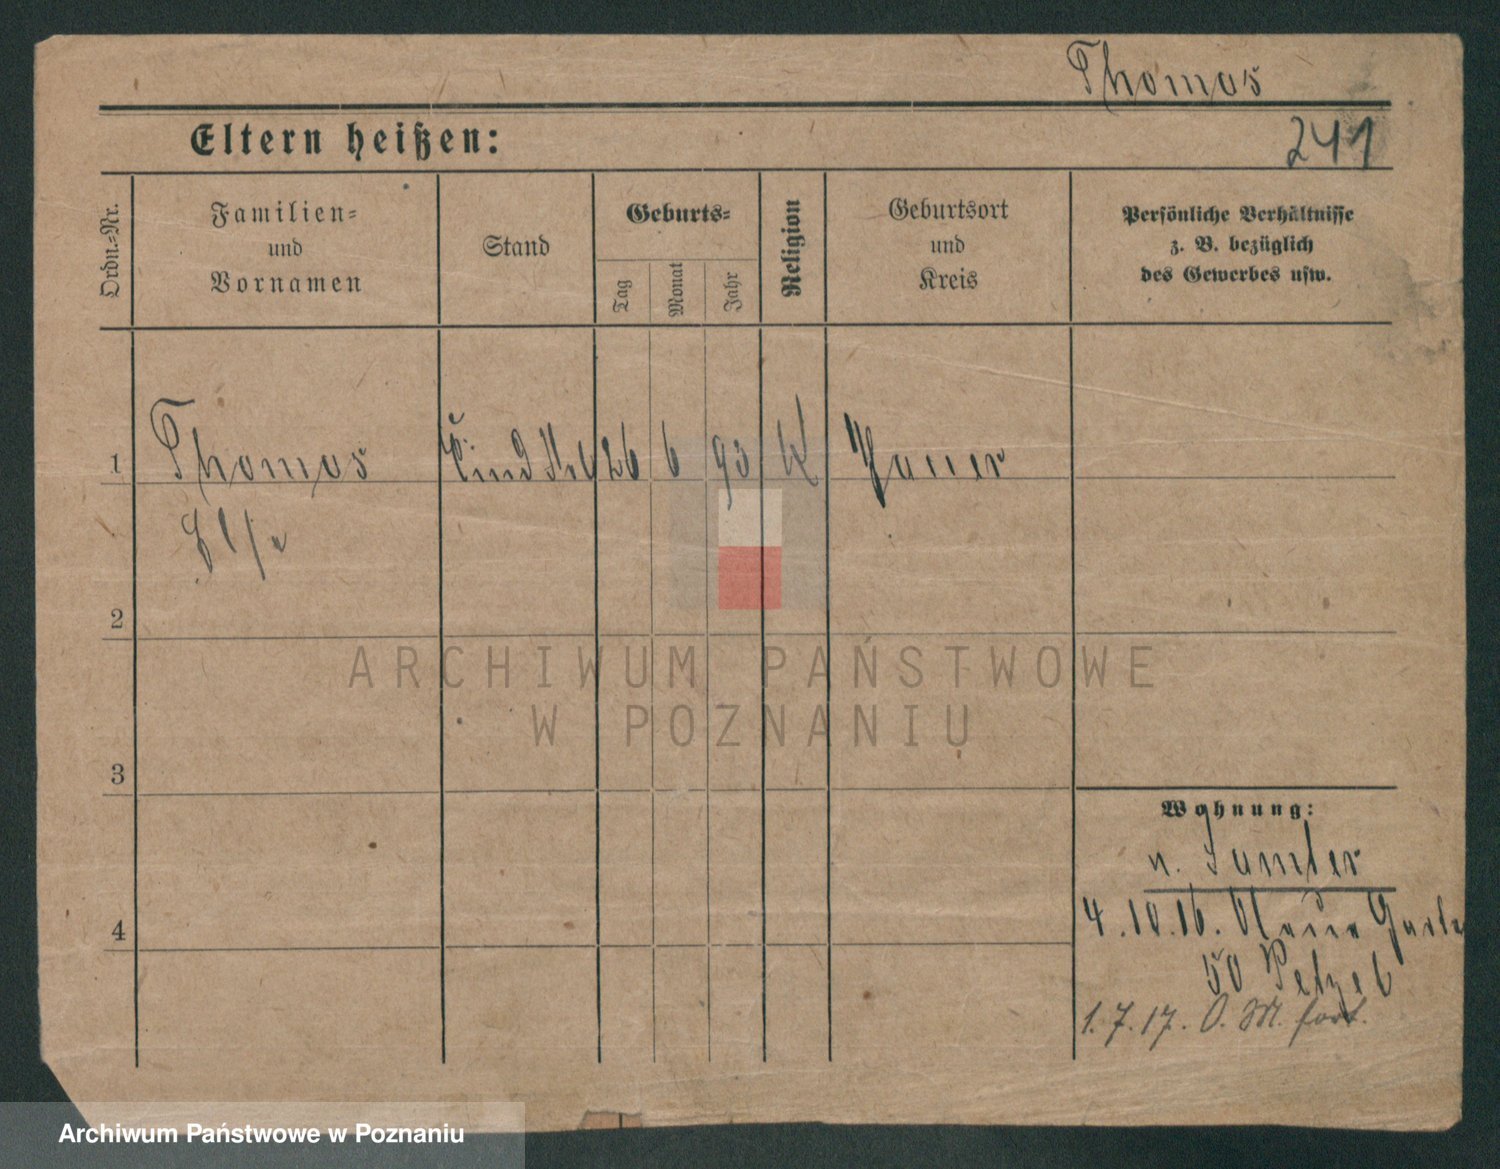 Thomas
Eltern heißen:
241
Ordn.=Nr.
Familien=
und
Vornamen
Stand
Geburts=
Tag
Monat
Jahr
Religion
Geburtsort
und
Kreis
Persönliche Verhältnisse
z. B. bezüglich
des Gewerbes usw.
1
Thomas
26
6
93
K
Jauer
Else
2
ARCHIWUM PAŃSTWOWE
W POZNANIU
3
Wohnung:
n. Samter
4
4.10.16. Neue
50
1.7.17. O. M. fort.
Archiwum Państwowe w Poznaniu